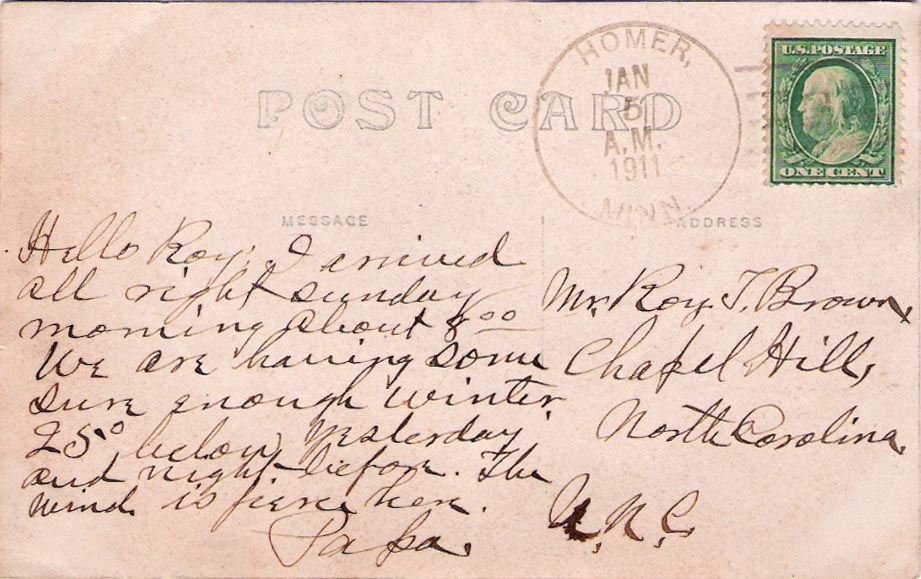 HOMER,
JAN
5
A.M.
1911
MINN.
U.S. POSTAGE
ONE CENT
POST CARD
MESSAGE
ADDRESS
Hello Roy, I arrived
all right sunday
morning about 8 00
We are having some
sure enough winter
25° below yesterday
and night before. The
wind is fierce here.
Papa.
Mr. Roy T. Brown,
Chapel Hill,
North Carolina.
U.N.C.